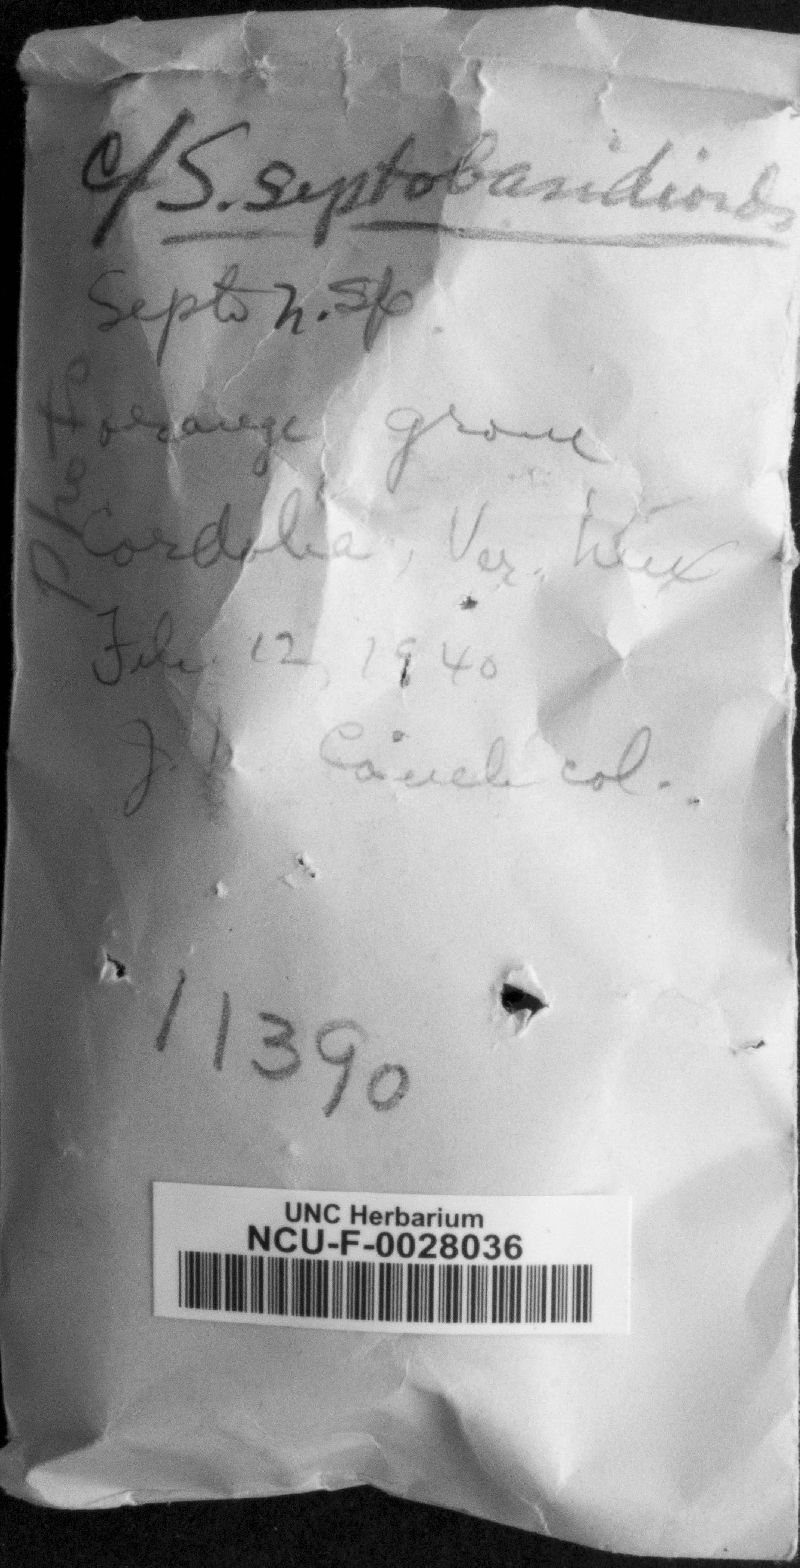 c/S. septobasidioides
Septo n. sp.
Photo
orange grove
Cordoba, Ver. Mex
Feb. 12, 1940
J. N. Couch col.
11390
UNC Herbarium
NCU-F-0028036